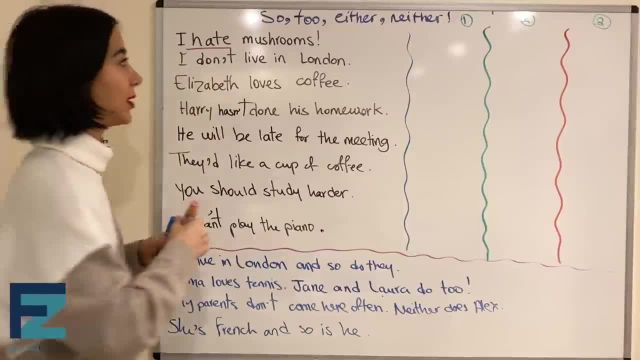 So, too, either, neither! ① ② ②
I hate mushrooms!
I don't live in London.
Elizabeth loves coffee.
Harry hasn't done his homework.
He will be late for the meeting.
They'd like a cup of coffee.
You should study harder.
play the piano.
in London and so do they.
loves tennis. Jane and Laura do too!
parents don't come here often. Neither does Alex.
She's French and so is he.
EZ